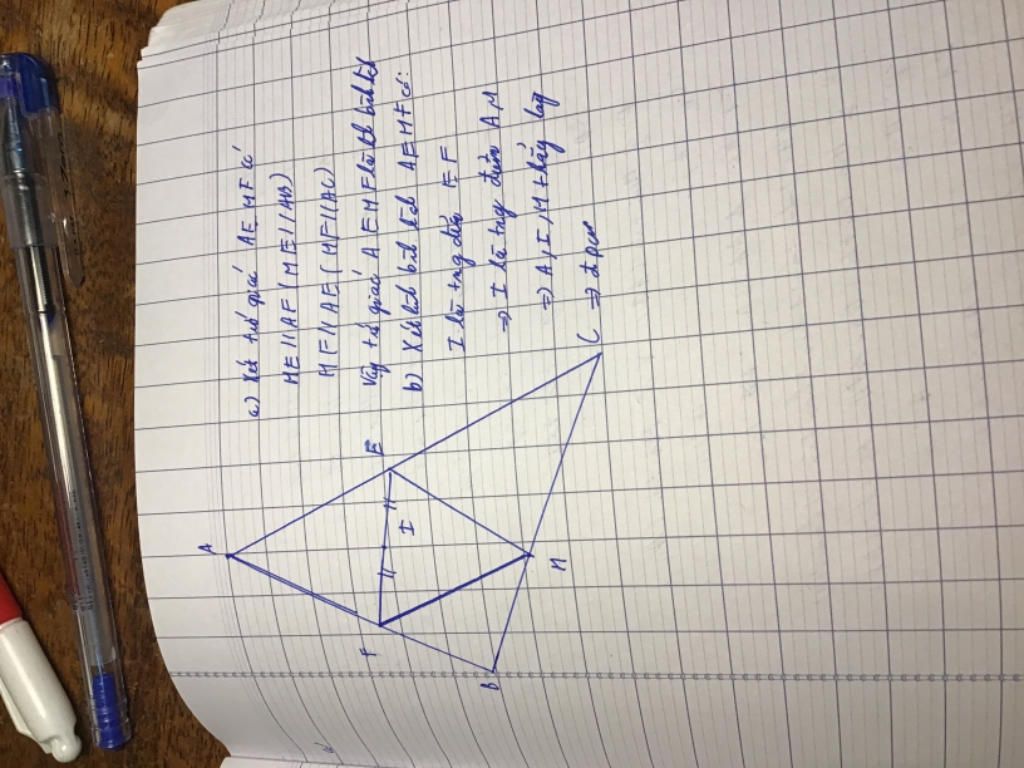 a) Xét tứ giác AEMF có
ME // AF (ME // AB)
MF // AE (MF // AC)
Vậy tứ giác AEMF là hình bình hành
b) Xét hình bình hành AEMF có:
I là trung điểm EF
=> I là trung điểm AM
=> A, I, M thẳng hàng
=> đpcm
A
F
E
I
B
M
C